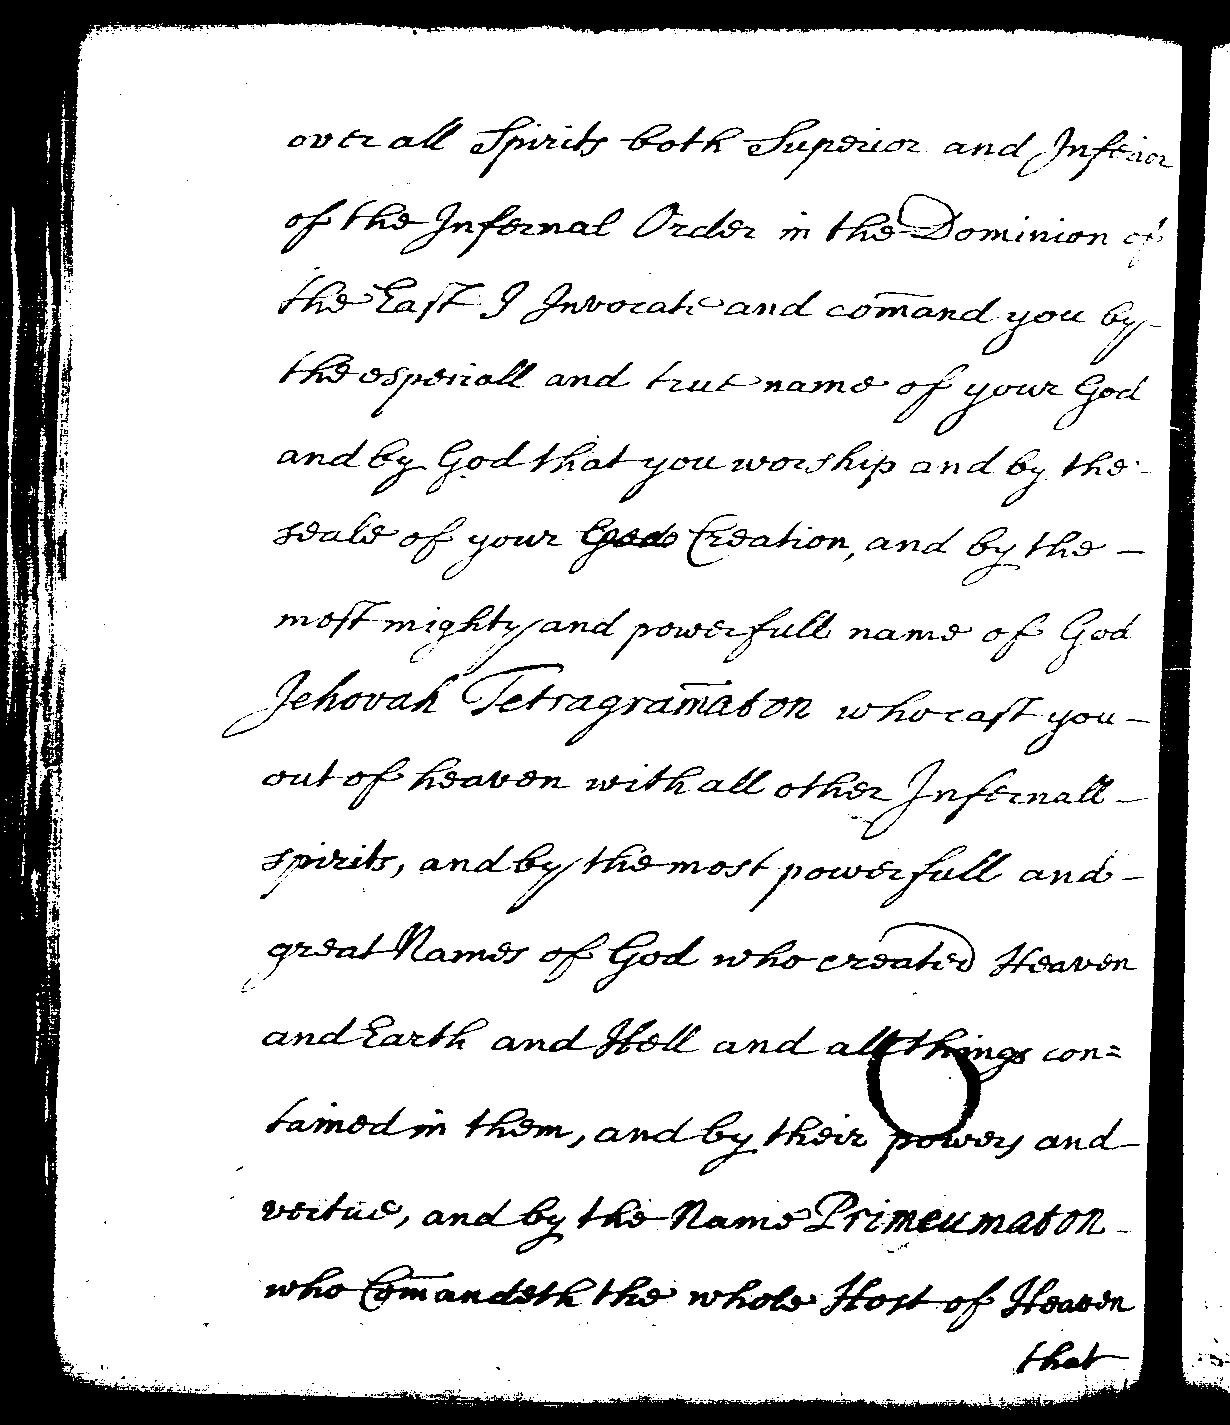 over all Spirits both Superior and Inferior
of the Infernal Order in the Dominion of
the East I Invocate and com̄and you by
the especiall and true name of your God
and by God that you worship and by the
seale of your Creation, and by the —
most mighty and powerfull name of God
Jehovah Tetragram̄aton who cast you —
out of heaven with all other Infernall —
spirits, and by the most powerfull and —
great Names of God who created Heaven
and Earth and Hell and all things con=
tained in them, and by their powers and
vertue, and by the Name Primeumaton
who Com̄andeth the whole Host of Heaven
that